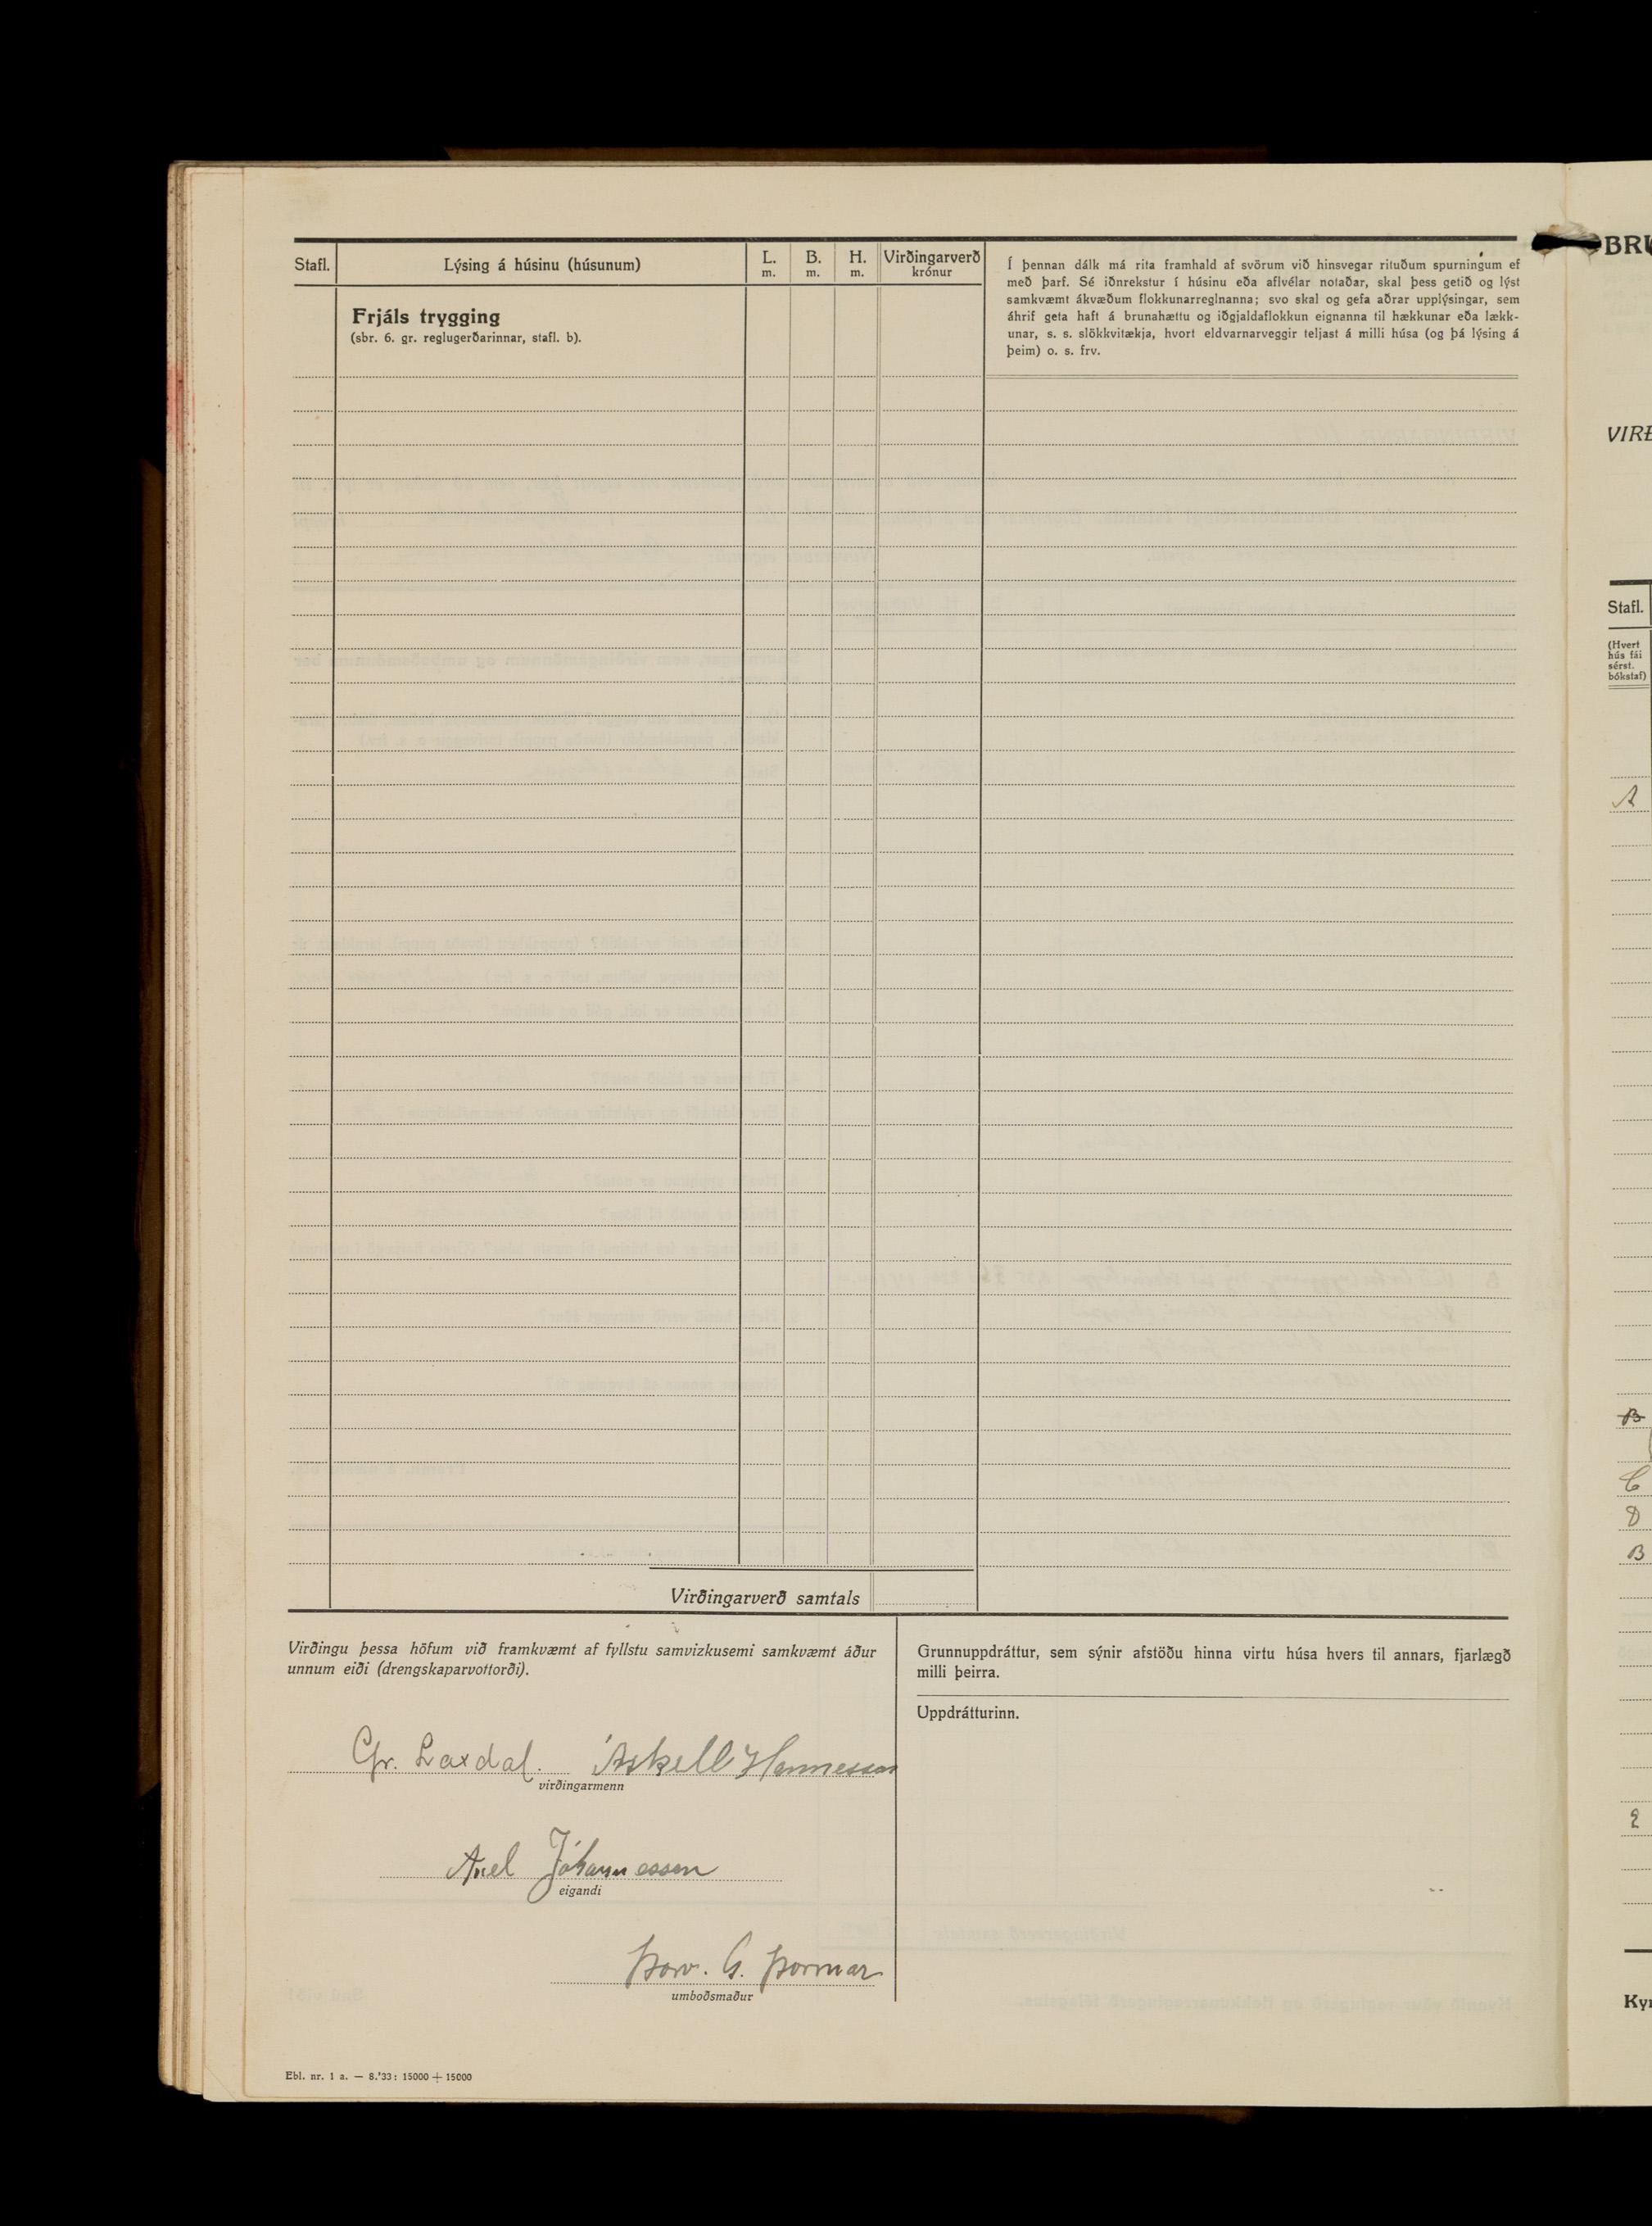 Stafl.
Lýsing á húsinu (húsunum)
L.
m.
B.
m.
H.
m.
Virðingarverð
krónur
Í þennan dálk má rita framhald af svörum við hinsvegar rituðum spurningum ef
með þarf. Sé iðnrekstur í húsinu eða aflvélar notaðar, skal þess getið og lýst
samkvæmt ákvæðum flokkunarreglnanna; svo skal og gefa aðrar upplýsingar, sem
áhrif geta haft á brunahættu og iðgjaldaflokkun eignanna til hækkunar eða lækk-
unar, s. s. slökkvitækja, hvort eldvarnarveggir teljast á milli húsa (og þá lýsing á
þeim) o. s. frv.
Frjáls trygging
(sbr. 6. gr. reglugerðarinnar, stafl. b).
Virðingarverð samtals
Virðingu þessa höfum við framkvæmt af fyllstu samvizkusemi samkvæmt áður
unnum eiði (drengskaparvottorði).
Gr. Laxdal. Áskell Hannesson
virðingarmenn
Axel Jóhannesson
eigandi
Þorv. G. Þormar
umboðsmaður
Grunnuppdráttur, sem sýnir afstöðu hinna virtu húsa hvers til annars, fjarlægð
milli þeirra.
Uppdrátturinn.
Ebl. nr. 1 a. — 8.'33: 15000 + 15000
BRU
VIRÐ
Stafl.
(Hvert
hús fái
sérst.
bókstaf)
A
B
C
D
B
E
Kyn